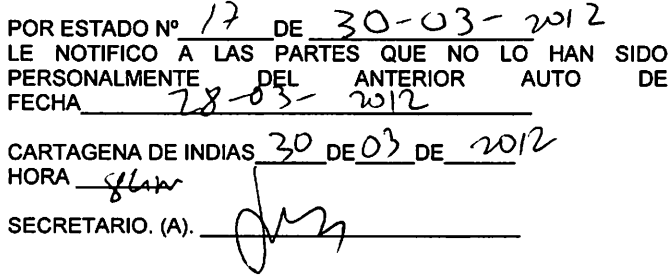 POR ESTADO Nº 17 DE 30-03-2012
LE NOTIFICO A LAS PARTES QUE NO LO HAN SIDO
PERSONALMENTE DEL ANTERIOR AUTO DE
FECHA 28-03-2012
CARTAGENA DE INDIAS 30 DE 03 DE 2012
HORA
SECRETARIO. (A).